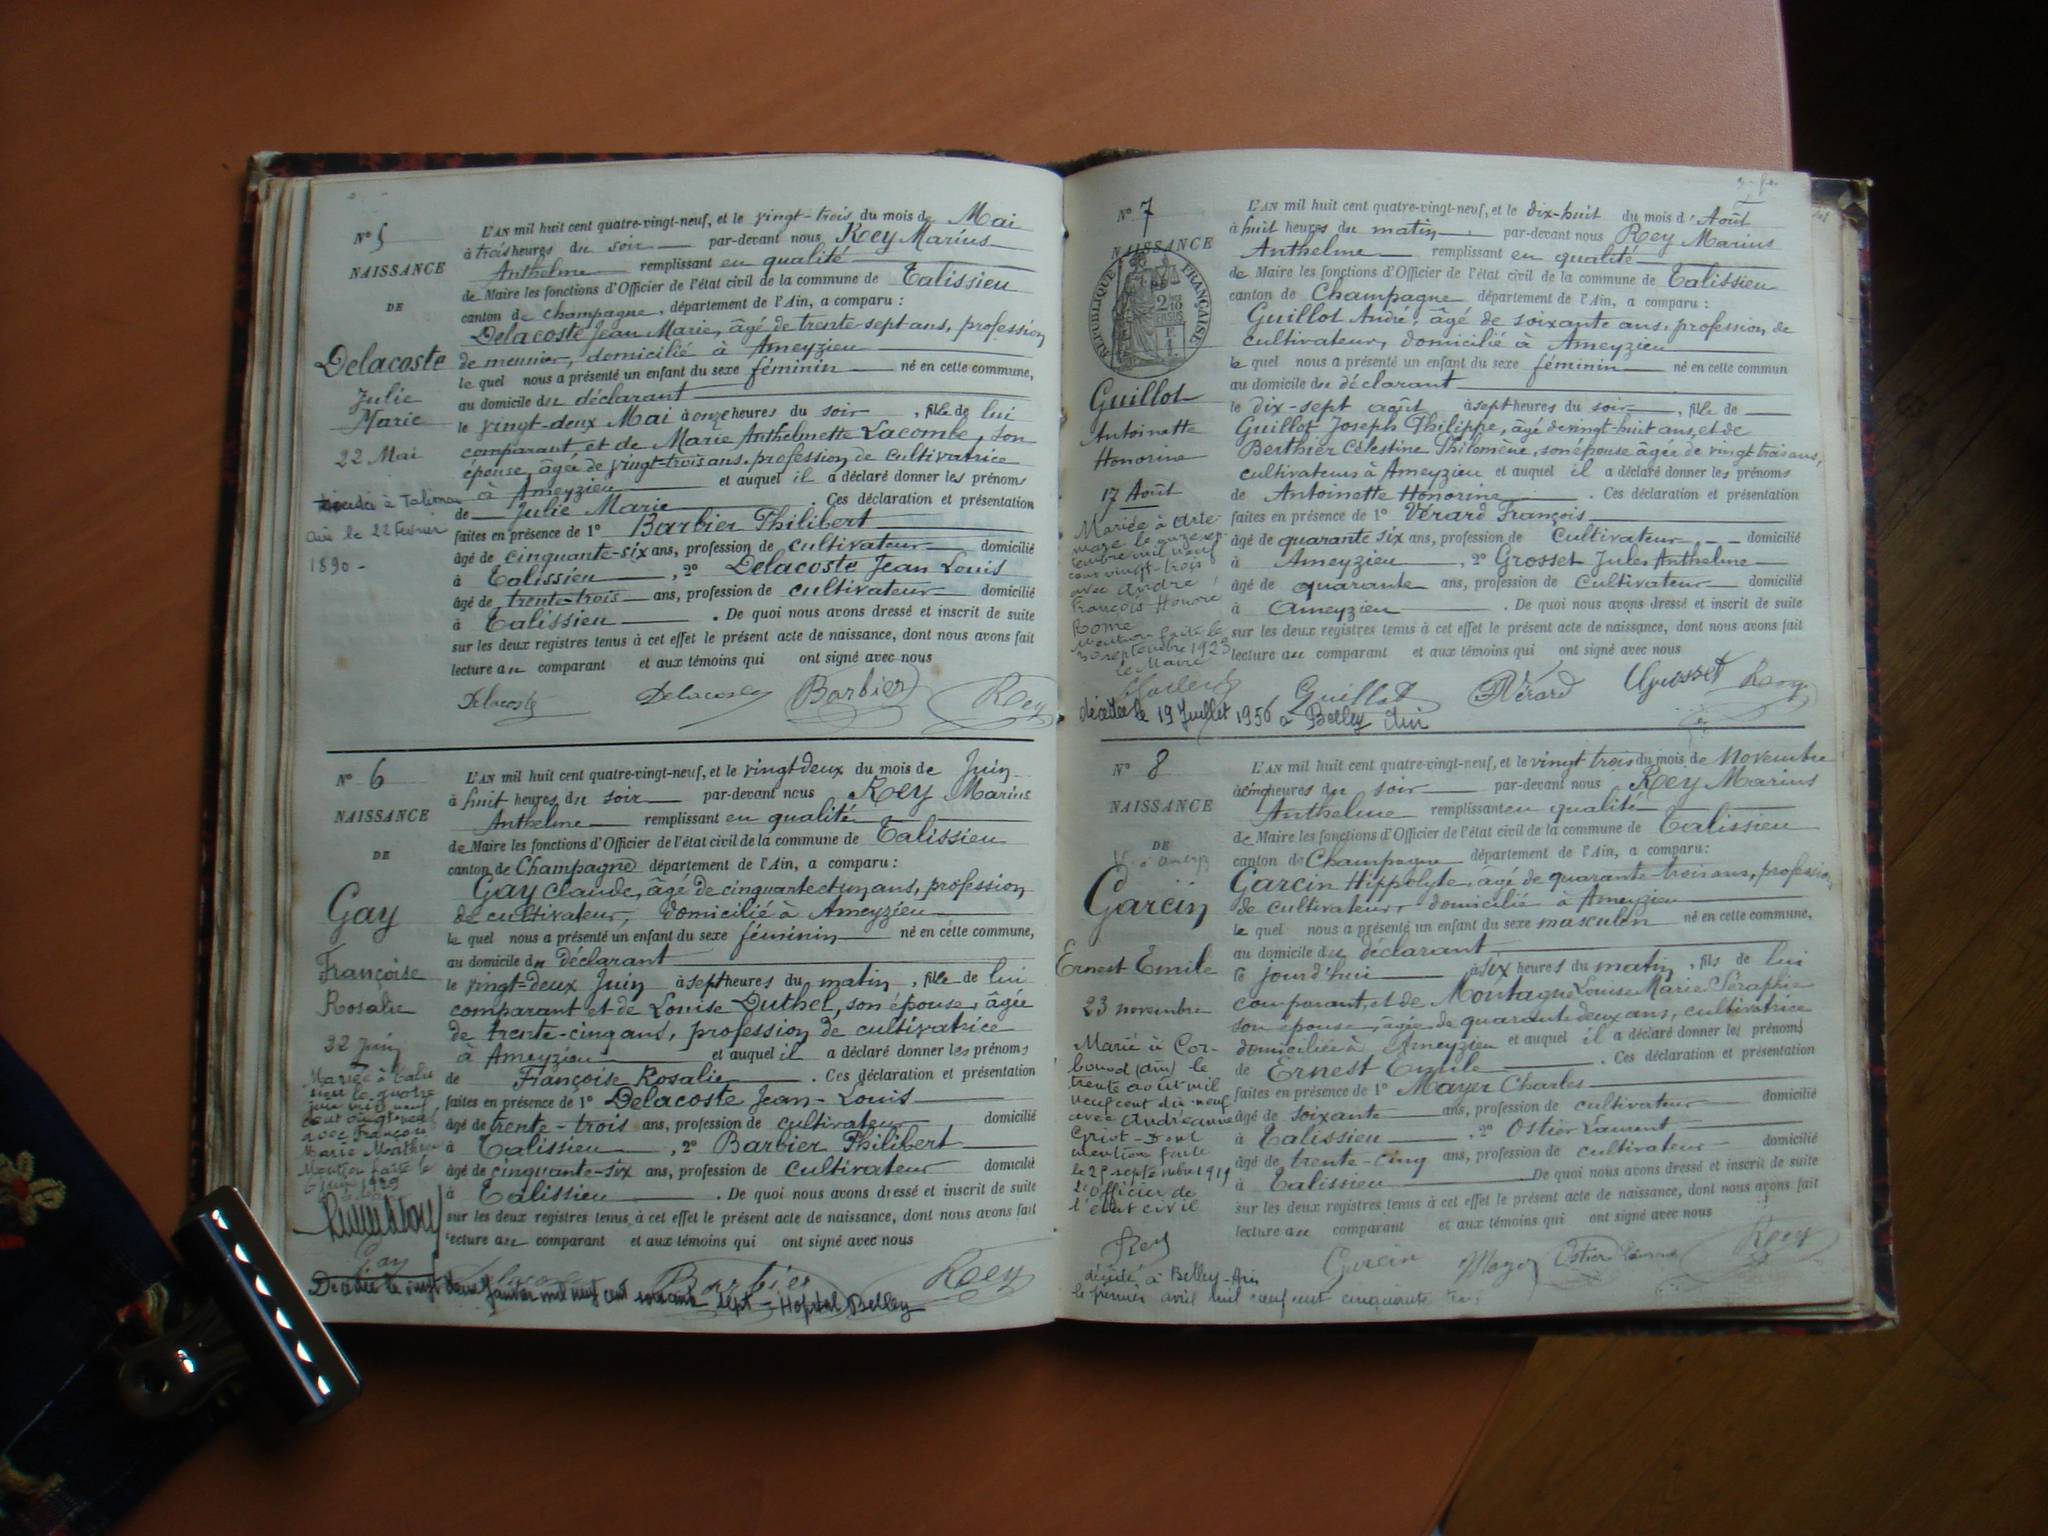 N° 5
NAISSANCE
DE
Delacoste
Julie
Marie
22 Mai
décédée à
le 22 Février
1890 -
L'AN mil huit cent quatre-vingt-neuf, et le vingt-trois du mois de Mai
à trois heures du soir par-devant nous Rey Marius
Anthelme remplissant en qualité
de Maire les fonctions d'Officier de l'état civil de la commune de Talissieu
canton de Champagne, département de l'Ain, a comparu :
Delacoste Jean Marie, âgé de trente-sept ans, profession
de meunier, domicilié à Ameyzieu
le quel nous a présenté un enfant du sexe féminin né en cette commune,
au domicile du déclarant
le vingt-deux Mai à onze heures du soir, fille de lui
comparant, et de Marie Anthelmette Lacombe, son
épouse, âgée de vingt-trois ans, profession de cultivatrice
à Ameyzieu et auquel il a déclaré donner les prénoms
de Julie Marie. Ces déclaration et présentation
faites en présence de 1° Barbier Philibert
âgé de cinquante-six ans, profession de cultivateur domicilié
à Talissieu, 2° Delacoste Jean Louis
âgé de trente-trois ans, profession de cultivateur domicilié
à Talissieu. De quoi nous avons dressé et inscrit de suite
sur les deux registres tenus à cet effet le présent acte de naissance, dont nous avons fait
lecture au comparant et aux témoins qui ont signé avec nous
Delacoste Delacoste Barbier Rey
N° 6
NAISSANCE
DE
Gay
Françoise
Rosalie
22 Juin
Mariée à Talis
sieu le quatre
juin mil neuf
cent vingt-neuf
avec François
Marie Mathieu
Mention faite le
6 juin 1929
L'AN mil huit cent quatre-vingt-neuf, et le vingt-deux du mois de Juin
à huit heures du soir par-devant nous Rey Marius
Anthelme remplissant en qualité
de Maire les fonctions d'Officier de l'état civil de la commune de Talissieu
canton de Champagne département de l'Ain, a comparu :
Gay Claude, âgé de cinquante et un ans, profession
de cultivateur, domicilié à Ameyzieu
le quel nous a présenté un enfant du sexe féminin né en cette commune,
au domicile du déclarant
le vingt-deux Juin à sept heures du matin, fille de lui
comparant et de Louise Duthel, son épouse, âgée
de trente-cinq ans, profession de cultivatrice
à Ameyzieu et auquel il a déclaré donner les prénoms
de Françoise Rosalie. Ces déclaration et présentation
faites en présence de 1° Delacoste Jean-Louis
âgé de trente-trois ans, profession de cultivateur domicilié
à Talissieu, 2° Barbier Philibert
âgé de cinquante-six ans, profession de cultivateur domicilié
à Talissieu. De quoi nous avons dressé et inscrit de suite
sur les deux registres tenus à cet effet le présent acte de naissance, dont nous avons fait
lecture au comparant et aux témoins qui ont signé avec nous
Gay Barbier Rey
Décédée le vingt deux Janvier mil neuf cent soixante sept - Hôpital Belley
N° 7
NAISSANCE
RÉPUBLIQUE FRANÇAISE
Guillot
Antoinette
Honorine
17 Août
Mariée à Arte-
mare le onze sep-
tembre mil neuf
cent vingt-trois
avec André
François Honoré
Rome
Mention faite le
septembre 1923
le Maire
L'AN mil huit cent quatre-vingt-neuf, et le dix-huit du mois d'Août
à huit heures du matin par-devant nous Rey Marius
Anthelme remplissant en qualité
de Maire les fonctions d'Officier de l'état civil de la commune de Talissieu
canton de Champagne département de l'Ain, a comparu :
Guillot André, âgé de soixante ans, profession de
cultivateur, domicilié à Ameyzieu
le quel nous a présenté un enfant du sexe féminin né en cette commun
au domicile du déclarant
le dix-sept août à sept heures du soir, fille de
Guillot Joseph Philippe, âgé de vingt-huit ans, et de
Berthier Célestine Philomène, son épouse âgée de vingt trois ans,
cultivateurs à Ameyzieu et auquel il a déclaré donner les prénoms
de Antoinette Honorine. Ces déclaration et présentation
faites en présence de 1° Vérard François
âgé de quarante six ans, profession de cultivateur domicilié
à Ameyzieu, 2° Grosset Jules Anthelme
âgé de quarante ans, profession de cultivateur domicilié
à Ameyzieu. De quoi nous avons dressé et inscrit de suite
sur les deux registres tenus à cet effet le présent acte de naissance, dont nous avons fait
lecture au comparant et aux témoins qui ont signé avec nous
Guillot Vérard Grosset Rey
décédée le 19 Juillet 1956 à Belley Ain
N° 8
NAISSANCE
DE
Garcin
Ernest Emile
23 novembre
Marié à Cor-
bonod (Ain) le
trente août mil
neuf cent dix-neuf
avec Andréanne
Griot - Dont
mention faite
le 25 septembre 1919
L'officier de
l'état civil
Rey
L'AN mil huit cent quatre-vingt-neuf, et le vingt trois du mois de Novembre
à cinq heures du soir par-devant nous Rey Marius
Anthelme remplissant en qualité
de Maire les fonctions d'Officier de l'état civil de la commune de Talissieu
canton de Champagne département de l'Ain, a comparu:
Garcin Hippolyte, âgé de quarante-trois ans, profession
de cultivateur, domicilié à Ameyzieu
le quel nous a présenté un enfant du sexe masculin né en cette commune,
au domicile du déclarant
le jourd'hui à six heures du matin, fils de lui
comparant, et de Montagne Louise Marie Séraphie
son épouse, âgée de quarante deux ans, cultivatrice
domiciliée à Ameyzieu et auquel il a déclaré donner les prénoms
de Ernest Emile. Ces déclaration et présentation
faites en présence de 1° Mayer Charles
âgé de soixante ans, profession de cultivateur domicilié
à Talissieu, 2° Ostier Laurent
âgé de trente-cinq ans, profession de cultivateur domicilié
à Talissieu. De quoi nous avons dressé et inscrit de suite
sur les deux registres tenus à cet effet le présent acte de naissance, dont nous avons fait
lecture au comparant et aux témoins qui ont signé avec nous
Garcin Mayer Ostier Laurent Rey
décédé à Belley-Ain
le premier avril mil neuf cent cinquante